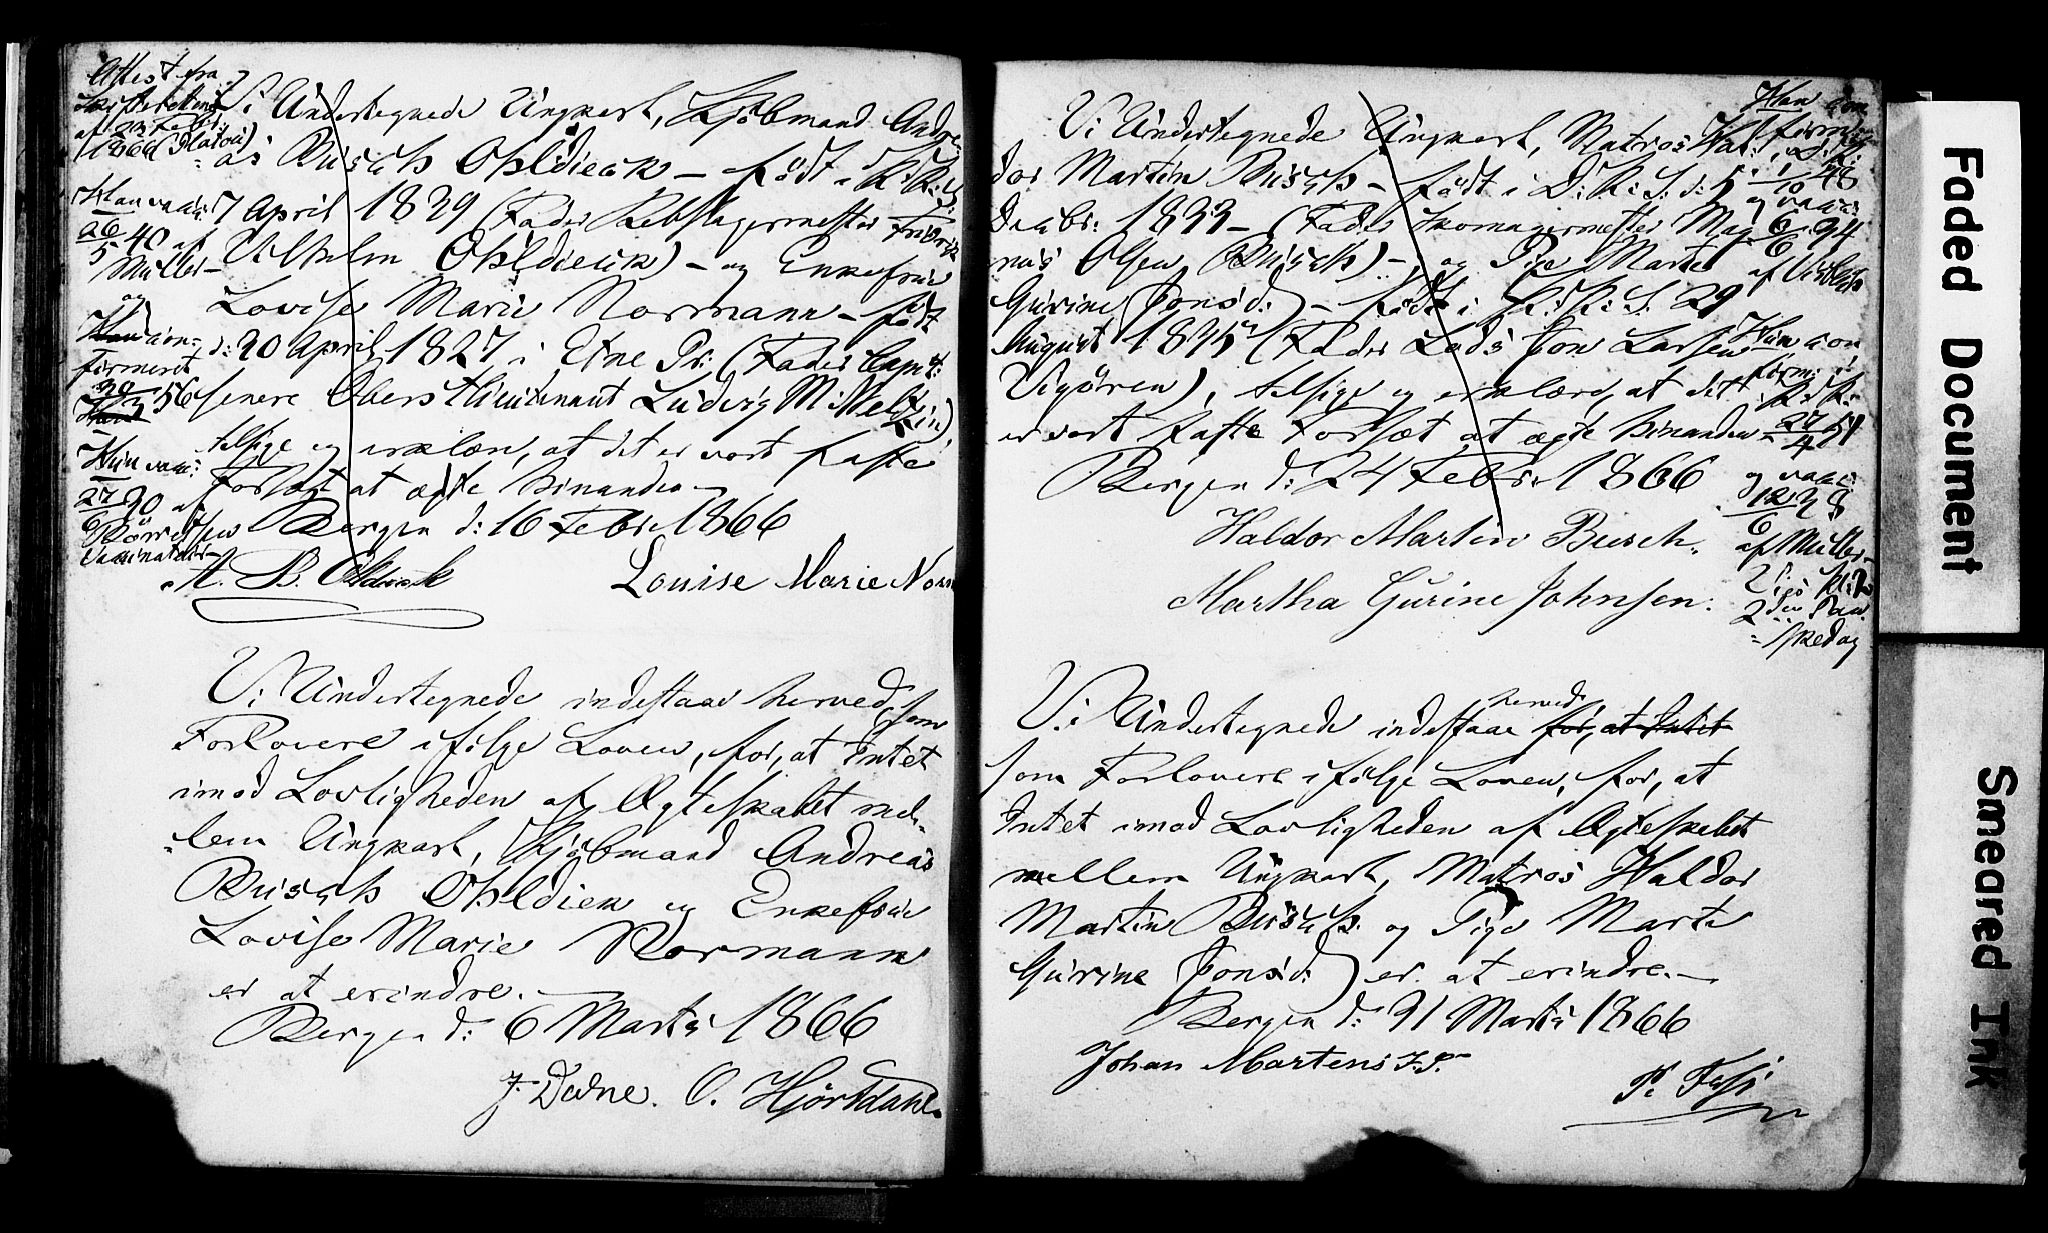 Attest fra
Skifteretten
af 23 Febr:
1866 (Platou)
Han vacc:
26/5 40 af
Müller
og
Han con-
firmeret
Hun vacc:
27/6 30 af
Børretsen
Vaccinatör
Vi Undertegnede Ungkarl, Kjöbmand Andre-
as Busch Ohldieck – födt i K: K: S:
7 April 1839 (Fader Rebslagermester Fredrik
Vilhelm Ohldieck) – og Enkefrue
Lovise Marie Normann – födt
d: 20 April 1827 i Etne Pr: (Fader Capt:
senere Oberstlieutenant Ludvig M: Meltzin)
tilsige og erklære, at det er vort faste
Forsæt at ægte hinanden –
Bergen d: 16 Febr. 1866
A. B. Ohldieck Louise Marie Norm
Vi Undertegnede indestaae herved, som
Forlovere ifölge Loven, for, at Intet
imod Lovligheden af Ægteskabet mel-
lem Ungkarl, Kjöbmand Andreas
Busch Ohldieck og Enkefrue
Lovise Marie Normann
er at erindre. –
Bergen d: 6 Marts 1866
J. Dedne. O. Hjörtdahl.
Vi Undertegnede Ungkarl, Matros Hal-
dor Martin Busch – födt i D: K: S: d: 5
Decbr: 1833 – (Fader Skomagermester Mag-
nus Olsen Busch) – og Pige Marte
Gurine Jonsd: – födt i K: K: S: 29
August 1835 (Fader Lods Jon Larsen
Vigören), tilsige og erklære, at det
er vort faste Forsæt at ægte hinanden –
Bergen d: 24 Febr. 1866
Haldor Martin Busch.
Martha Gurine Johnsen.
Han con
firm:
i D: K:
1/10 48
og vacc:
6/6 34
af Visbech
Hun con
firm: i
K: K:
27/4 51
og vacc:
12/6 38
af Müller
Vigö Kirke
2den Paa-
skedag
Vi Undertegnede indestaae herved for, at Intet
som Forlovere ifölge Loven, for, at
Intet imod Lovligheden af Ægteskabet
mellem Ungkarl, Matros Haldor
Martin Busch og Pige Marte
Gurine Jonsd: er at erindre. –
Bergen d: 31 Marts 1866
Johan Martens
Faded Document
Smeared Ink